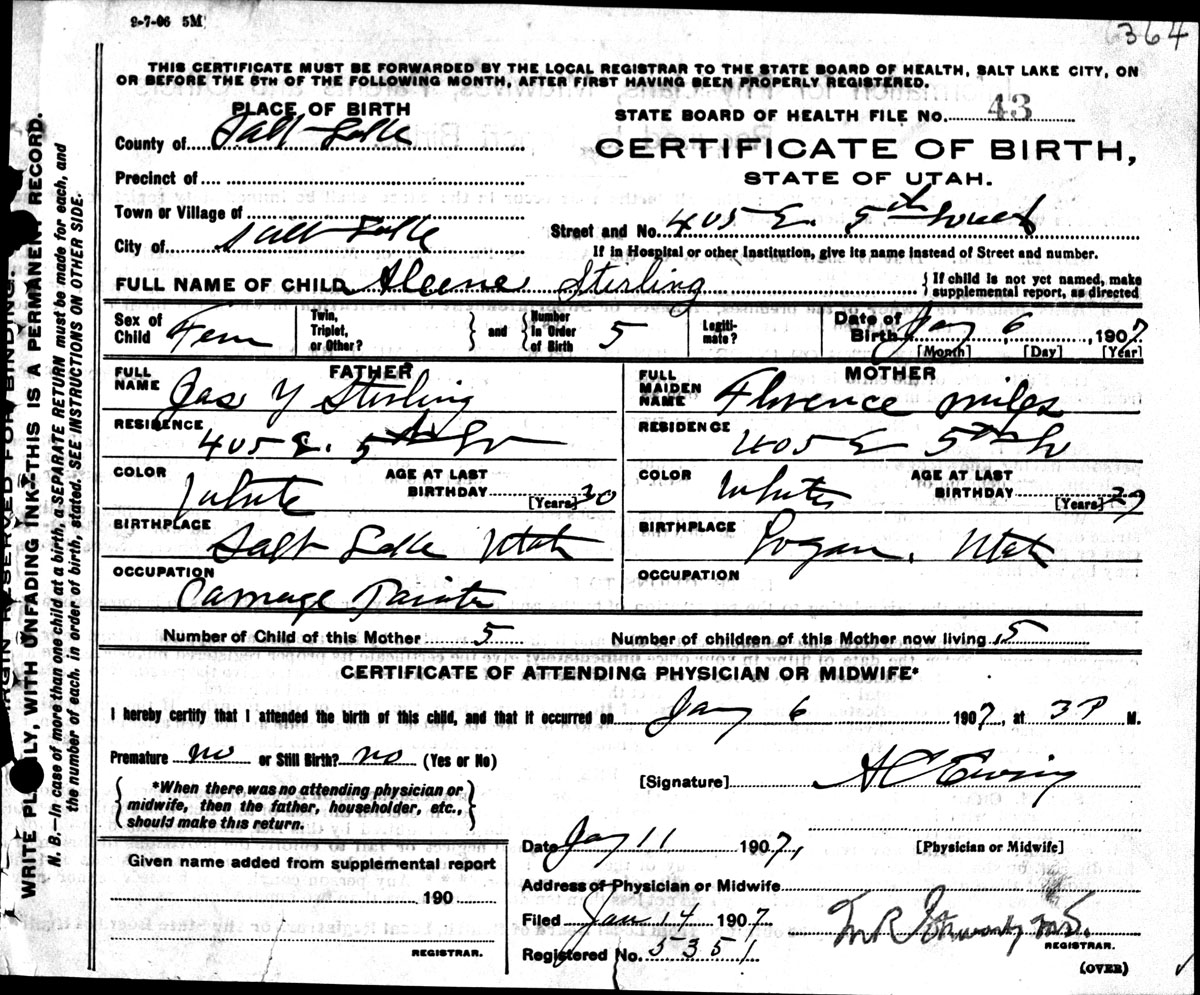 2-7-06 5M
364
THIS CERTIFICATE MUST BE FORWARDED BY THE LOCAL REGISTRAR TO THE STATE BOARD OF HEALTH, SALT LAKE CITY, ON
OR BEFORE THE 5TH OF THE FOLLOWING MONTH, AFTER FIRST HAVING BEEN PROPERLY REGISTERED.
PLACE OF BIRTH
County of Salt Lake
Precinct of
Town or Village of
City of Salt Lake
STATE BOARD OF HEALTH FILE No. 43
CERTIFICATE OF BIRTH,
STATE OF UTAH.
Street and No. 405 E. 5th South
If in Hospital or other Institution, give its name instead of Street and number.
FULL NAME OF CHILD Aleene Stirling
{If child is not yet named, make
supplemental report, as directed
Sex of Child Fem
Twin, Triplet, or Other?
} and {
Number in Order of Birth 5
Legiti-mate?
Date of Birth Jany 6, 1907
[Month] [Day] [Year]
FATHER
FULL NAME Jas Y Stirling
RESIDENCE 405 E. 5th So
COLOR White
AGE AT LAST BIRTHDAY 30 [Years]
BIRTHPLACE Salt Lake Utah
OCCUPATION Carriage Painter
MOTHER
FULL MAIDEN NAME Florence Miles
RESIDENCE 405 E 5th So
COLOR White
AGE AT LAST BIRTHDAY 29 [Years]
BIRTHPLACE Logan, Utah
OCCUPATION
Number of Child of this Mother 5
Number of children of this Mother now living 5
CERTIFICATE OF ATTENDING PHYSICIAN OR MIDWIFE*
I hereby certify that I attended the birth of this child, and that it occurred on Jany 6 1907, at 3 P M.
Premature no or Still Birth? no (Yes or No)
{*When there was no attending physician or
midwife, then the father, householder, etc.,
should make this return.}
[Signature] A C Ewing
Date Jany 11 1907,
[Physician or Midwife]
Given name added from supplemental report
190
REGISTRAR.
Address of Physician or Midwife
Filed Jan 14 1907
Registered No. 5351
M.D.
REGISTRAR.
(OVER)
MARGIN RESERVED FOR BINDING.
WRITE PLAINLY, WITH UNFADING INK—THIS IS A PERMANENT RECORD.
N. B.—In case of more than one child at a birth, a SEPARATE RETURN must be made for each, and
the number of each, in order of birth, stated. SEE INSTRUCTIONS ON OTHER SIDE.